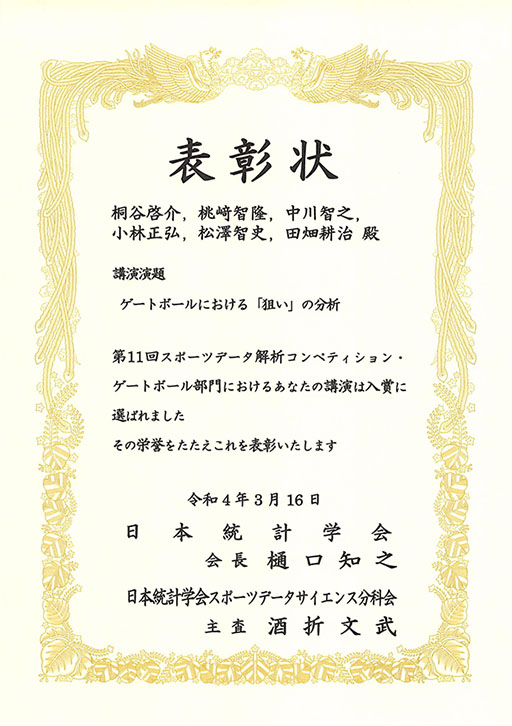 表彰状
桐谷啓介, 桃﨑智隆, 中川智之,
小林正弘, 松澤智史, 田畑耕治 殿
講演演題
ゲートボールにおける「狙い」の分析
第11回スポーツデータ解析コンペティション・
ゲートボール部門におけるあなたの講演は入賞に
選ばれました
その栄誉をたたえこれを表彰いたします
令和4年3月16日
日本統計学会
会長 樋口知之
日本統計学会スポーツデータサイエンス分科会
主査 酒折文武